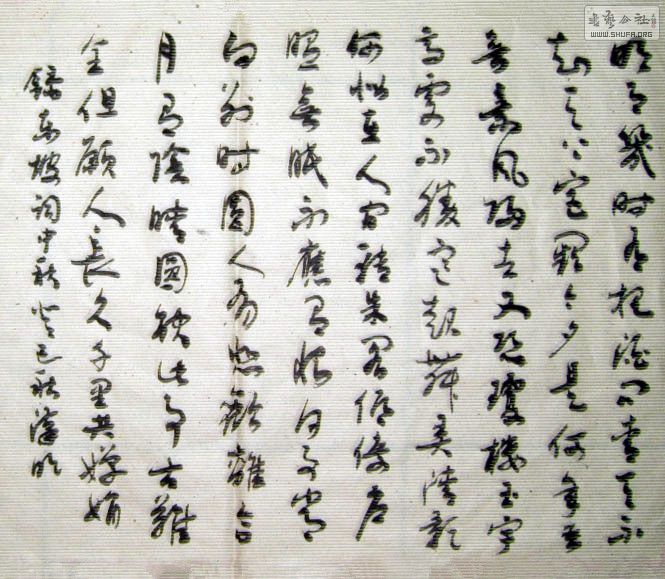 明月幾时有把酒问青天不
知天上宫闕今夕是何年我
欲乘風歸去又恐瓊樓玉宇
高處不勝寒起舞弄清影
何似在人间轉朱阁低綺户
照無眠不應有恨何事常
向别时圓人有悲歡離合
月有陰晴圓缺此事古難
全但願人長久千里共嬋娟
錄東坡詞中秋癸巳秋
书艺公社
WWW.SHUFA.ORG